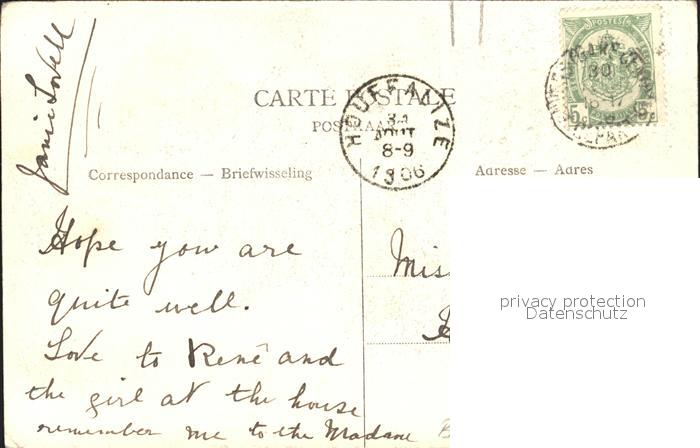 Janie Lovell
CARTE POSTALE
POSTKAART
HOUFFALIZE
31
AOUT
8-9
1906
POSTES
5c 5c
30
DEPART
Correspondance — Briefwisseling
Adresse — Adres
Hope you are
quite well.
Love to René and
the girl at the house
remember me to the Madame B
Mis
privacy protection
Datenschutz